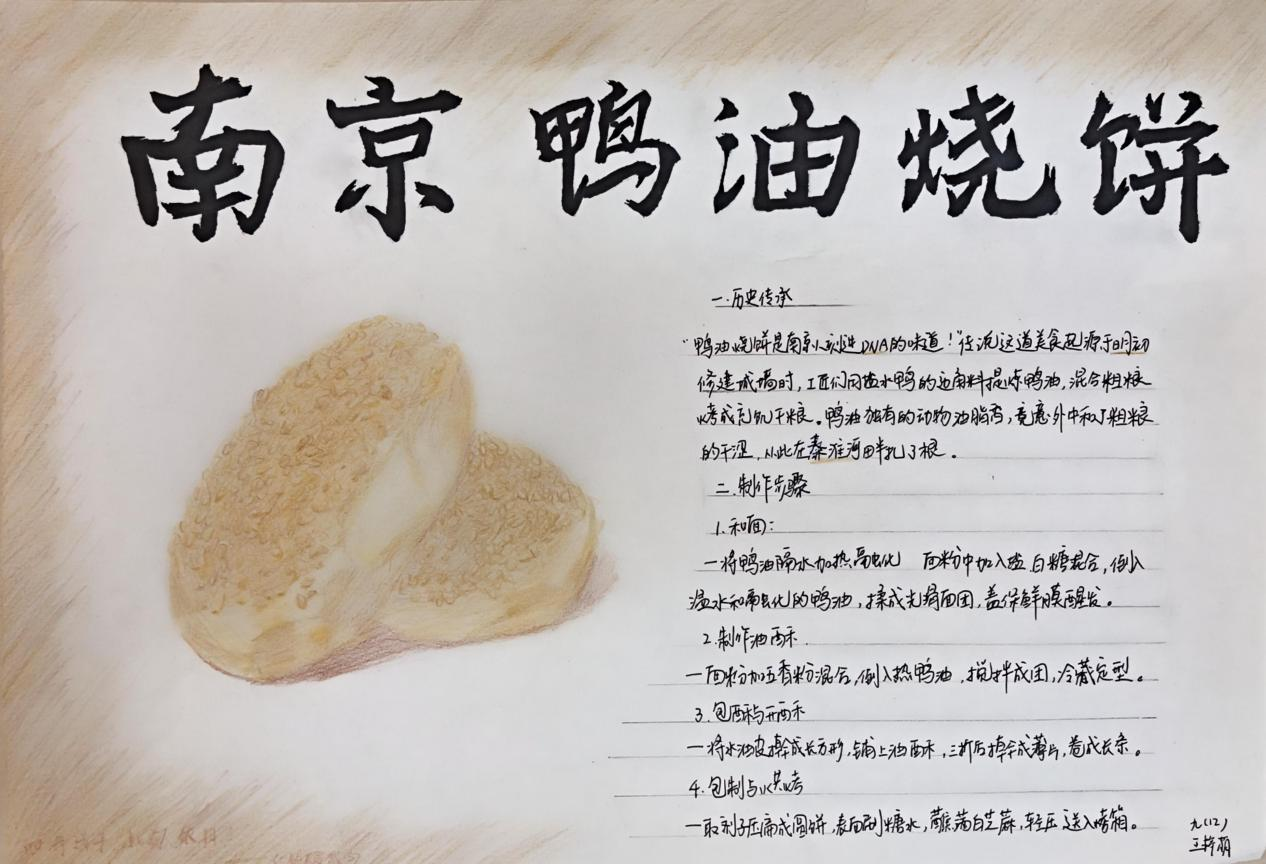 南京鸭油烧饼
一.历史传承
"鸭油烧饼是南京人刻进DNA的味道!"传说这道美食起源于明初
修建城墙时,工匠们用盐水鸭的边角料提炼鸭油,混合粗粮
烤成充饥干粮。鸭油独有的动物油脂香,竟意外中和了粗粮
的干涩,从此在秦淮河畔扎了根。
二.制作步骤
1.和面:
—将鸭油隔水加热融化 面粉中加入盐 白糖混合,倒入
温水和融化的鸭油,揉成光滑面团,盖保鲜膜醒发。
2.制作油酥.
—面粉加五香粉混合,倒入热鸭油,搅拌成团,冷藏定型。
3.包酥与开酥
—将水油皮擀成长方形,铺上油酥,三折后擀成薄片,卷成长条。
4.包制与烘烤
—取剂子压扁成圆饼,表面刷糖水,蘸满白芝麻,轻压送入烤箱。
九(12)